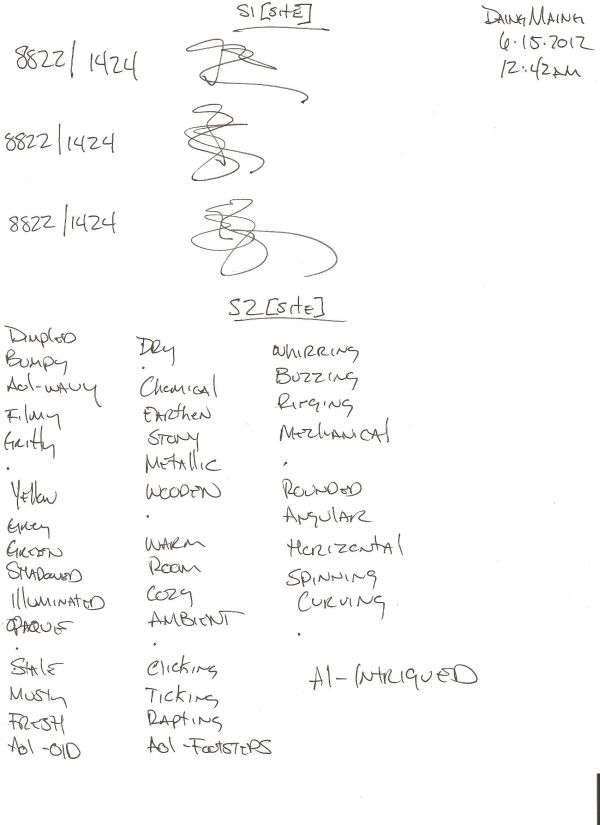 S1 [SITE]
DAING MAING
6.15.2012
12:42AM
8822/1424
8822/1424
8822/1424
S2 [SITE]
DIMPLED
BUMPY
AOL-WAVY
FILMY
GRITTY
.
YELLOW
GREY
GREEN
SHADOWED
ILLUMINATED
OPAQUE
.
STALE
MUSTY
FRESH
AOL-OLD
DRY
.
CHEMICAL
EARTHEN
STONY
METALLIC
WOODEN
.
WARM
ROOM
COZY
AMBIENT
.
CLICKING
TICKING
RAPTING
AOL-FOOTSTEPS
WHIRRING
BUZZING
RINGING
MECHANICAL
.
ROUNDED
ANGULAR
HORIZENTAL
SPINNING
CURVING
.
AI-INTRIQUED